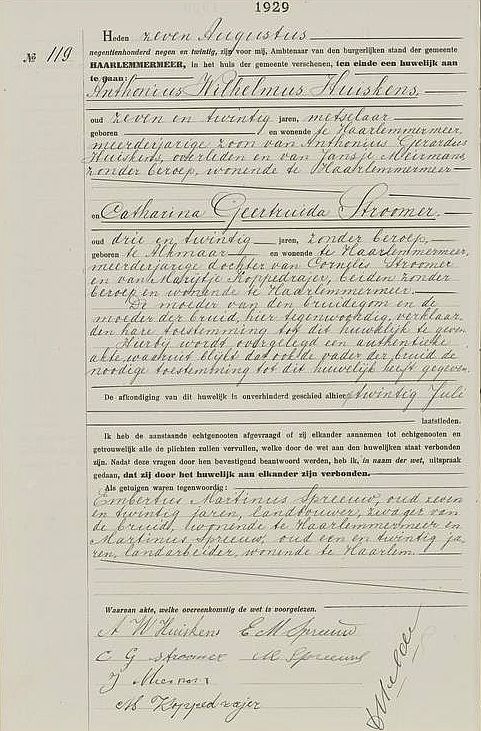 1929
№ 119
Heden zeven Augustus
negentienhonderd negen en twintig, zijn voor mij, Ambtenaar van den burgerlijken stand der gemeente
HAARLEMMERMEER, in het huis der gemeente verschenen, ten einde een huwelijk aan
te gaan:
Anthonius Wilhelmus Huiskens,
oud zeven en twintig jaren, metselaar
geboren en wonende te Haarlemmermeer,
meerderjarige zoon van Anthonius Gerardus
Huiskens, overleden en van Jansje Meirmans,
zonder beroep, wonende te Haarlemmermeer
en Catharina Geertruida Stroomer.
oud drie en twintig jaren, zonder beroep,
geboren te Alkmaar en wonende te Haarlemmermeer,
meerderjarige dochter van Cornelis Stroomer
en van Marijtje Koppedraijer, beiden zonder
beroep en wonende te Haarlemmermeer.
De moeder van den bruidegom en de
moeder der bruid, hier tegenwoordig, verklaar
den hare toestemming tot dit huwelijk te geven.
Hierbij wordt overgelegd een authentieke
akte, waaruit blijkt dat ook de vader der bruid de
noodige toestemming tot dit huwelijk heeft gegeven.
De afkondiging van dit huwelijk is onverhinderd geschied alhier, twintig Juli
laatstleden.
Ik heb de aanstaande echtgenooten afgevraagd of zij elkander aannemen tot echtgenooten en
getrouwelijk alle de plichten zullen vervullen, welke door de wet aan den huwelijken staat verbonden
zijn. Nadat deze vragen door hen bevestigend beantwoord werden, heb ik, in naam der wet, uitspraak
gedaan, dat zij door het huwelijk aan elkander zijn verbonden.
Als getuigen waren tegenwoordig:
Embertus Martinus Spreeuw, oud zeven
en twintig jaren, landbouwer, zwager van
de bruid, wonende te Haarlemmermeer en
Martinus Spreeuw, oud een en twintig ja-
ren, landarbeider, wonende te Haarlem.
Waarvan akte, welke overeenkomstig de wet is voorgelezen.
A W Huiskens E M Spreeuw
C G Stroomer M Spreeuw
J Mierman
M Koppedraijer